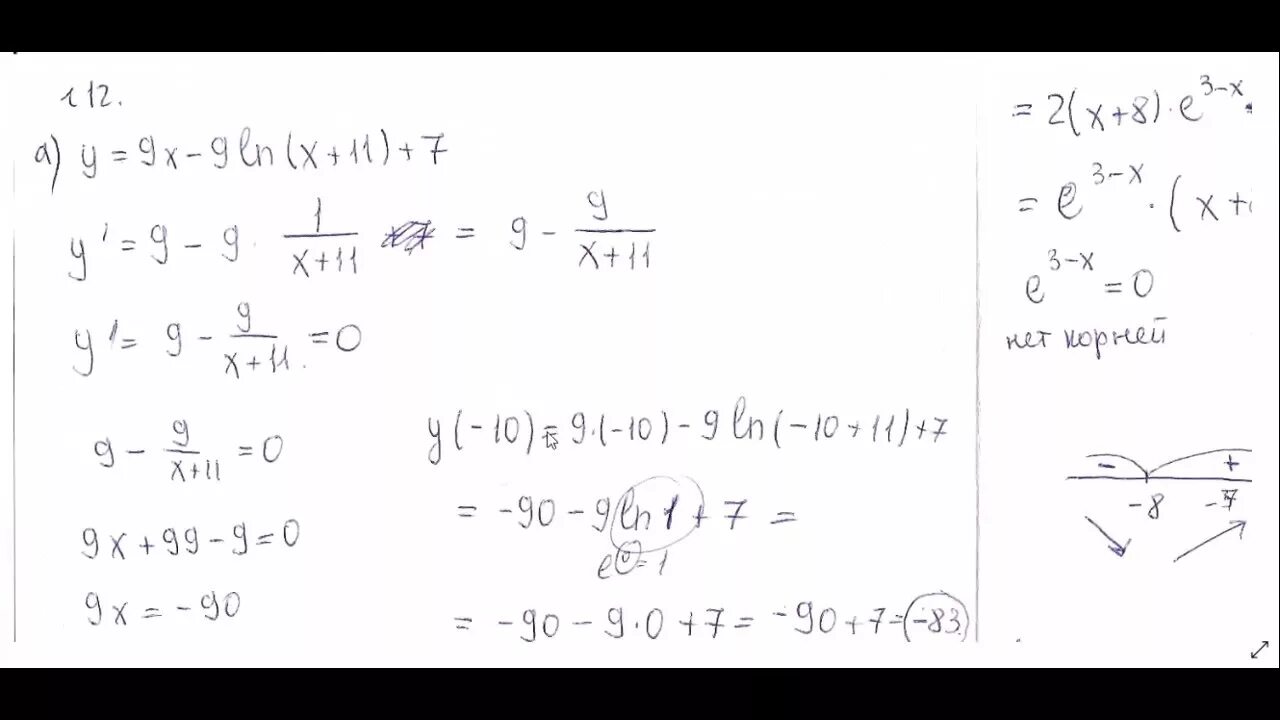 12.
а) y = 9x - 9 ln(x + 11) + 7
y' = 9 - 9 · 1/(x+11) = 9 - 9/(x+11)
y' = 9 - 9/(x+11) = 0
9 - 9/(x+11) = 0
9x + 99 - 9 = 0
9x = -90
y(-10) = 9·(-10) - 9 ln(-10 + 11) + 7
= -90 - 9 ln 1 + 7 =
e^0 = 1
= -90 - 9·0 + 7 = -90 + 7 = -83
= 2(x+8)·e^(3-x)
= e^(3-x) · (x+
e^(3-x) = 0
нет корней
- +
-8 -7